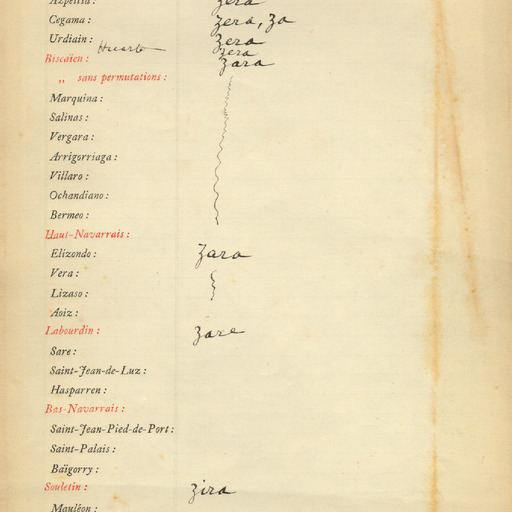 Azpeitia : zera
Cegama : zera, za
Urdiain : zera
Huarte zera
Biscaïen : zara
„ sans permutations :
Marquina :
Salinas :
Vergara :
Arrigorriaga :
Villaro :
Ochandiano :
Bermeo :
Haut-Navarrais :
Elizondo : zara
Vera :
Lizaso :
Aoiz :
Labourdin : zare
Sare :
Saint-Jean-de-Luz :
Hasparren :
Bas-Navarrais :
Saint-Jean-Pied-de-Port :
Saint-Palais :
Baïgorry :
Souletin : zira
Mauléon :